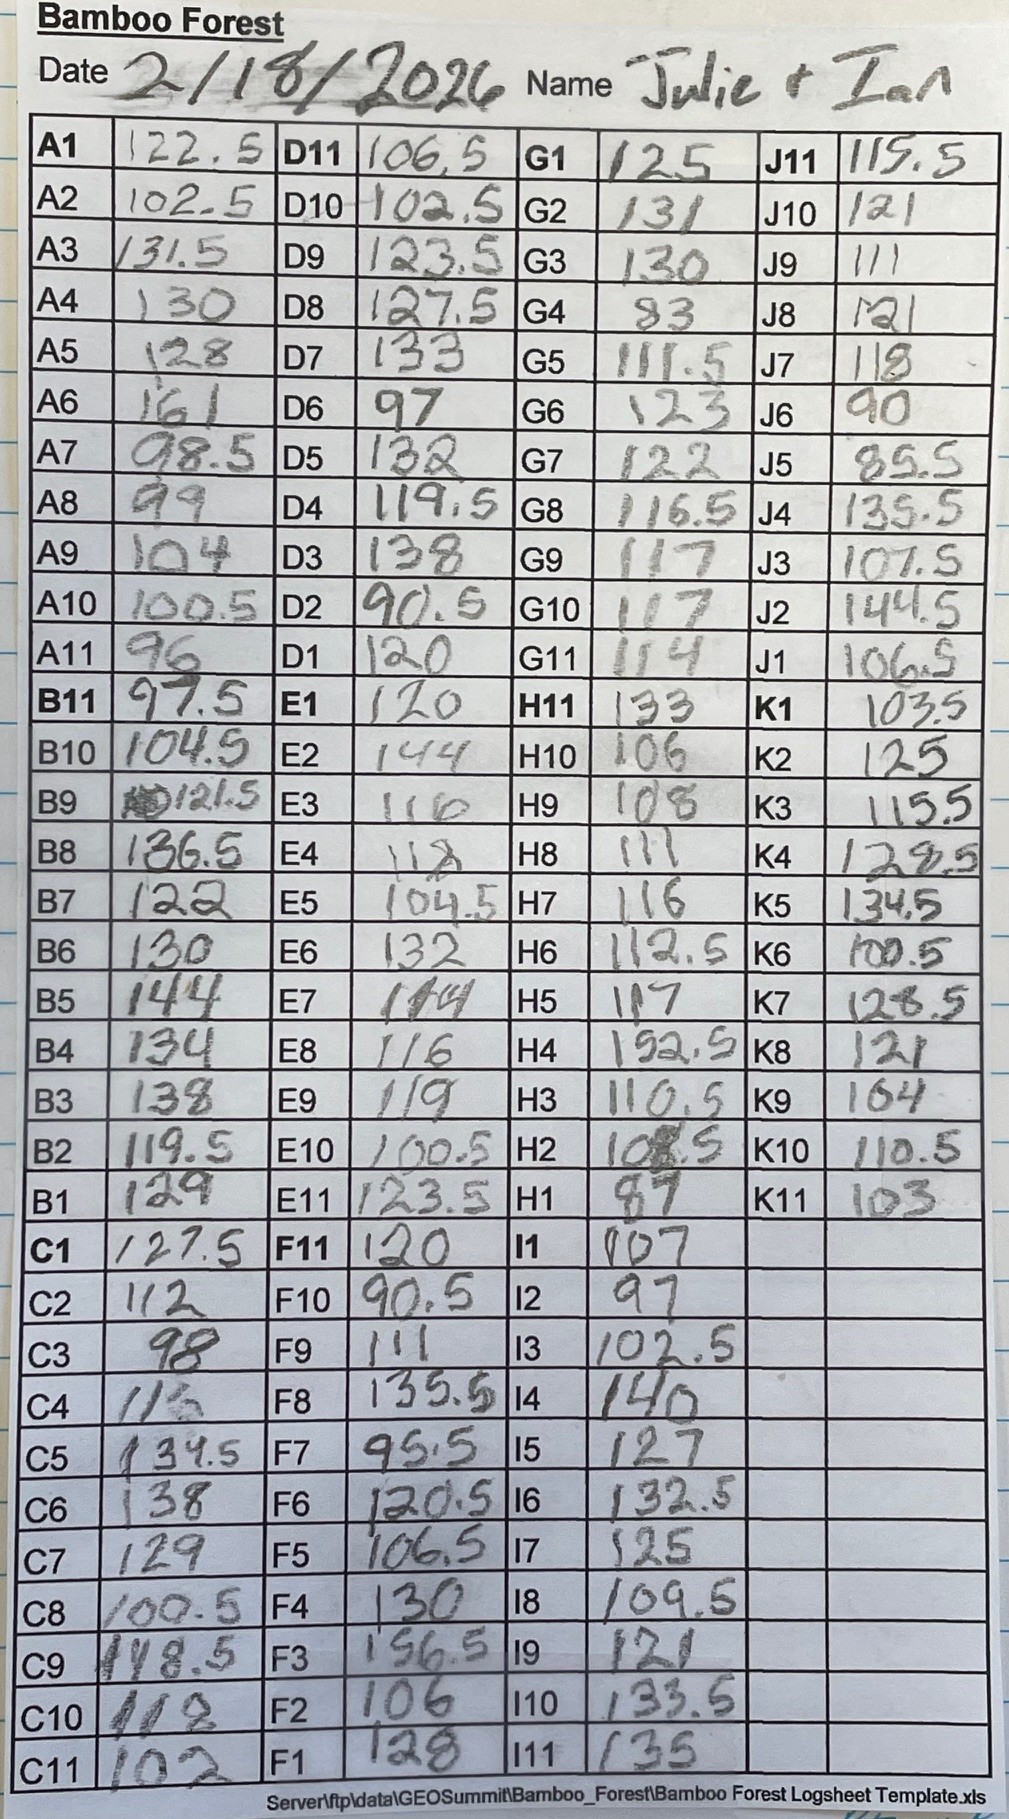 Bamboo Forest
Date 2/18/2026 Name Julie + Ian
A1 122.5 D11 106.5 G1 125 J11 115.5
A2 102.5 D10 102.5 G2 131 J10 121
A3 131.5 D9 123.5 G3 130 J9 111
A4 130 D8 127.5 G4 83 J8 121
A5 128 D7 133 G5 111.5 J7 118
A6 161 D6 97 G6 123 J6 90
A7 98.5 D5 132 G7 122 J5 85.5
A8 99 D4 119.5 G8 116.5 J4 135.5
A9 104 D3 138 G9 117 J3 107.5
A10 100.5 D2 90.5 G10 117 J2 144.5
A11 96 D1 120 G11 114 J1 106.5
B11 97.5 E1 120 H11 133 K1 103.5
B10 104.5 E2 144 H10 106 K2 125
B9 121.5 E3 116 H9 108 K3 115.5
B8 136.5 E4 118 H8 111 K4 128.5
B7 122 E5 104.5 H7 116 K5 134.5
B6 130 E6 132 H6 112.5 K6 100.5
B5 144 E7 H5 117 K7 128.5
B4 134 E8 116 H4 152.5 K8 121
B3 138 E9 119 H3 110.5 K9 104
B2 119.5 E10 100.5 H2 108.5 K10 110.5
B1 129 E11 123.5 H1 87 K11 103
C1 127.5 F11 120 I1 107
C2 112 F10 90.5 I2 97
C3 98 F9 111 I3 102.5
C4 F8 135.5 I4 140
C5 134.5 F7 95.5 I5 127
C6 138 F6 120.5 I6 132.5
C7 129 F5 106.5 I7 125
C8 100.5 F4 130 I8 109.5
C9 148.5 F3 156.5 I9 121
C10 118 F2 106 I10 133.5
C11 102 F1 128 I11 135
Server\ftp\data\GEOSummit\Bamboo_Forest\Bamboo Forest Logsheet Template.xls